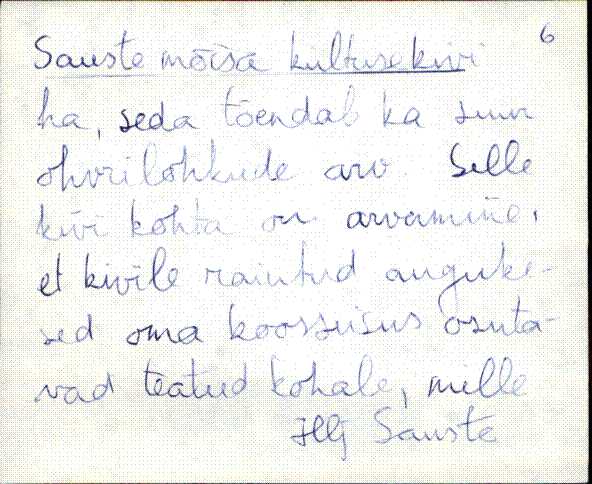 6
Sauste mõisa kultusekivi
ha, seda tõendab ka suur
ohvrilohkude arv. Selle
kivi kohta on arvamine,
et kivile raiutud auguke-
sed oma koosseisus osuta-
vad teatud kohale, mille
Sauste